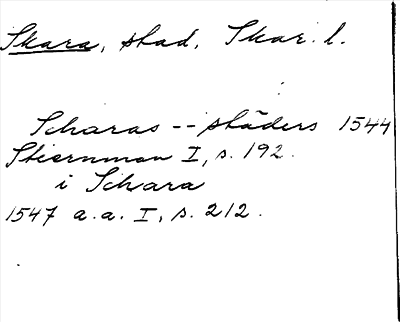 Skara, stad, Skar. l.
Scharas -- städers 1544
Stiernman I, s. 192.
i Schara
1547 a.a. I, s. 212.